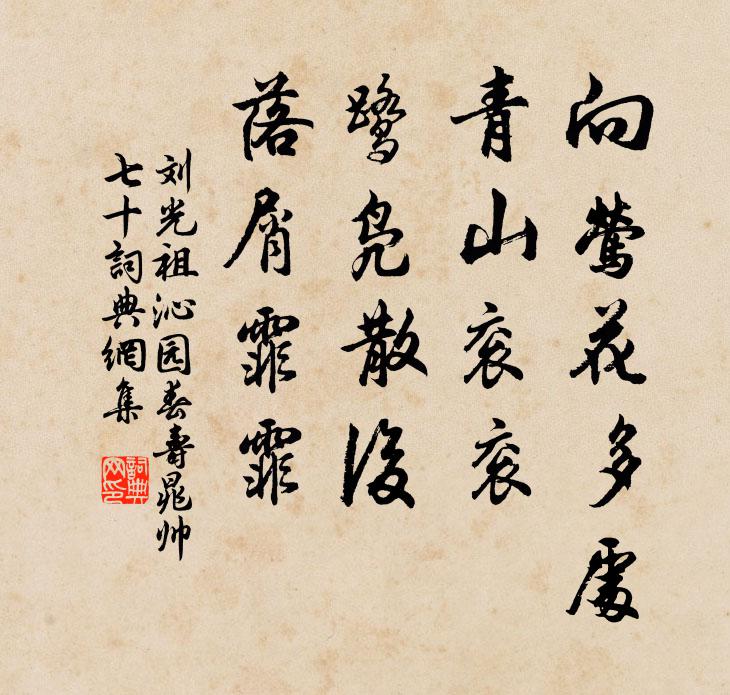 向鶯花多處
青山衮衮
鷺凫散後
落屑霏霏
刘光祖沁园春壽晁帅
七十詞典網集
詞典网印